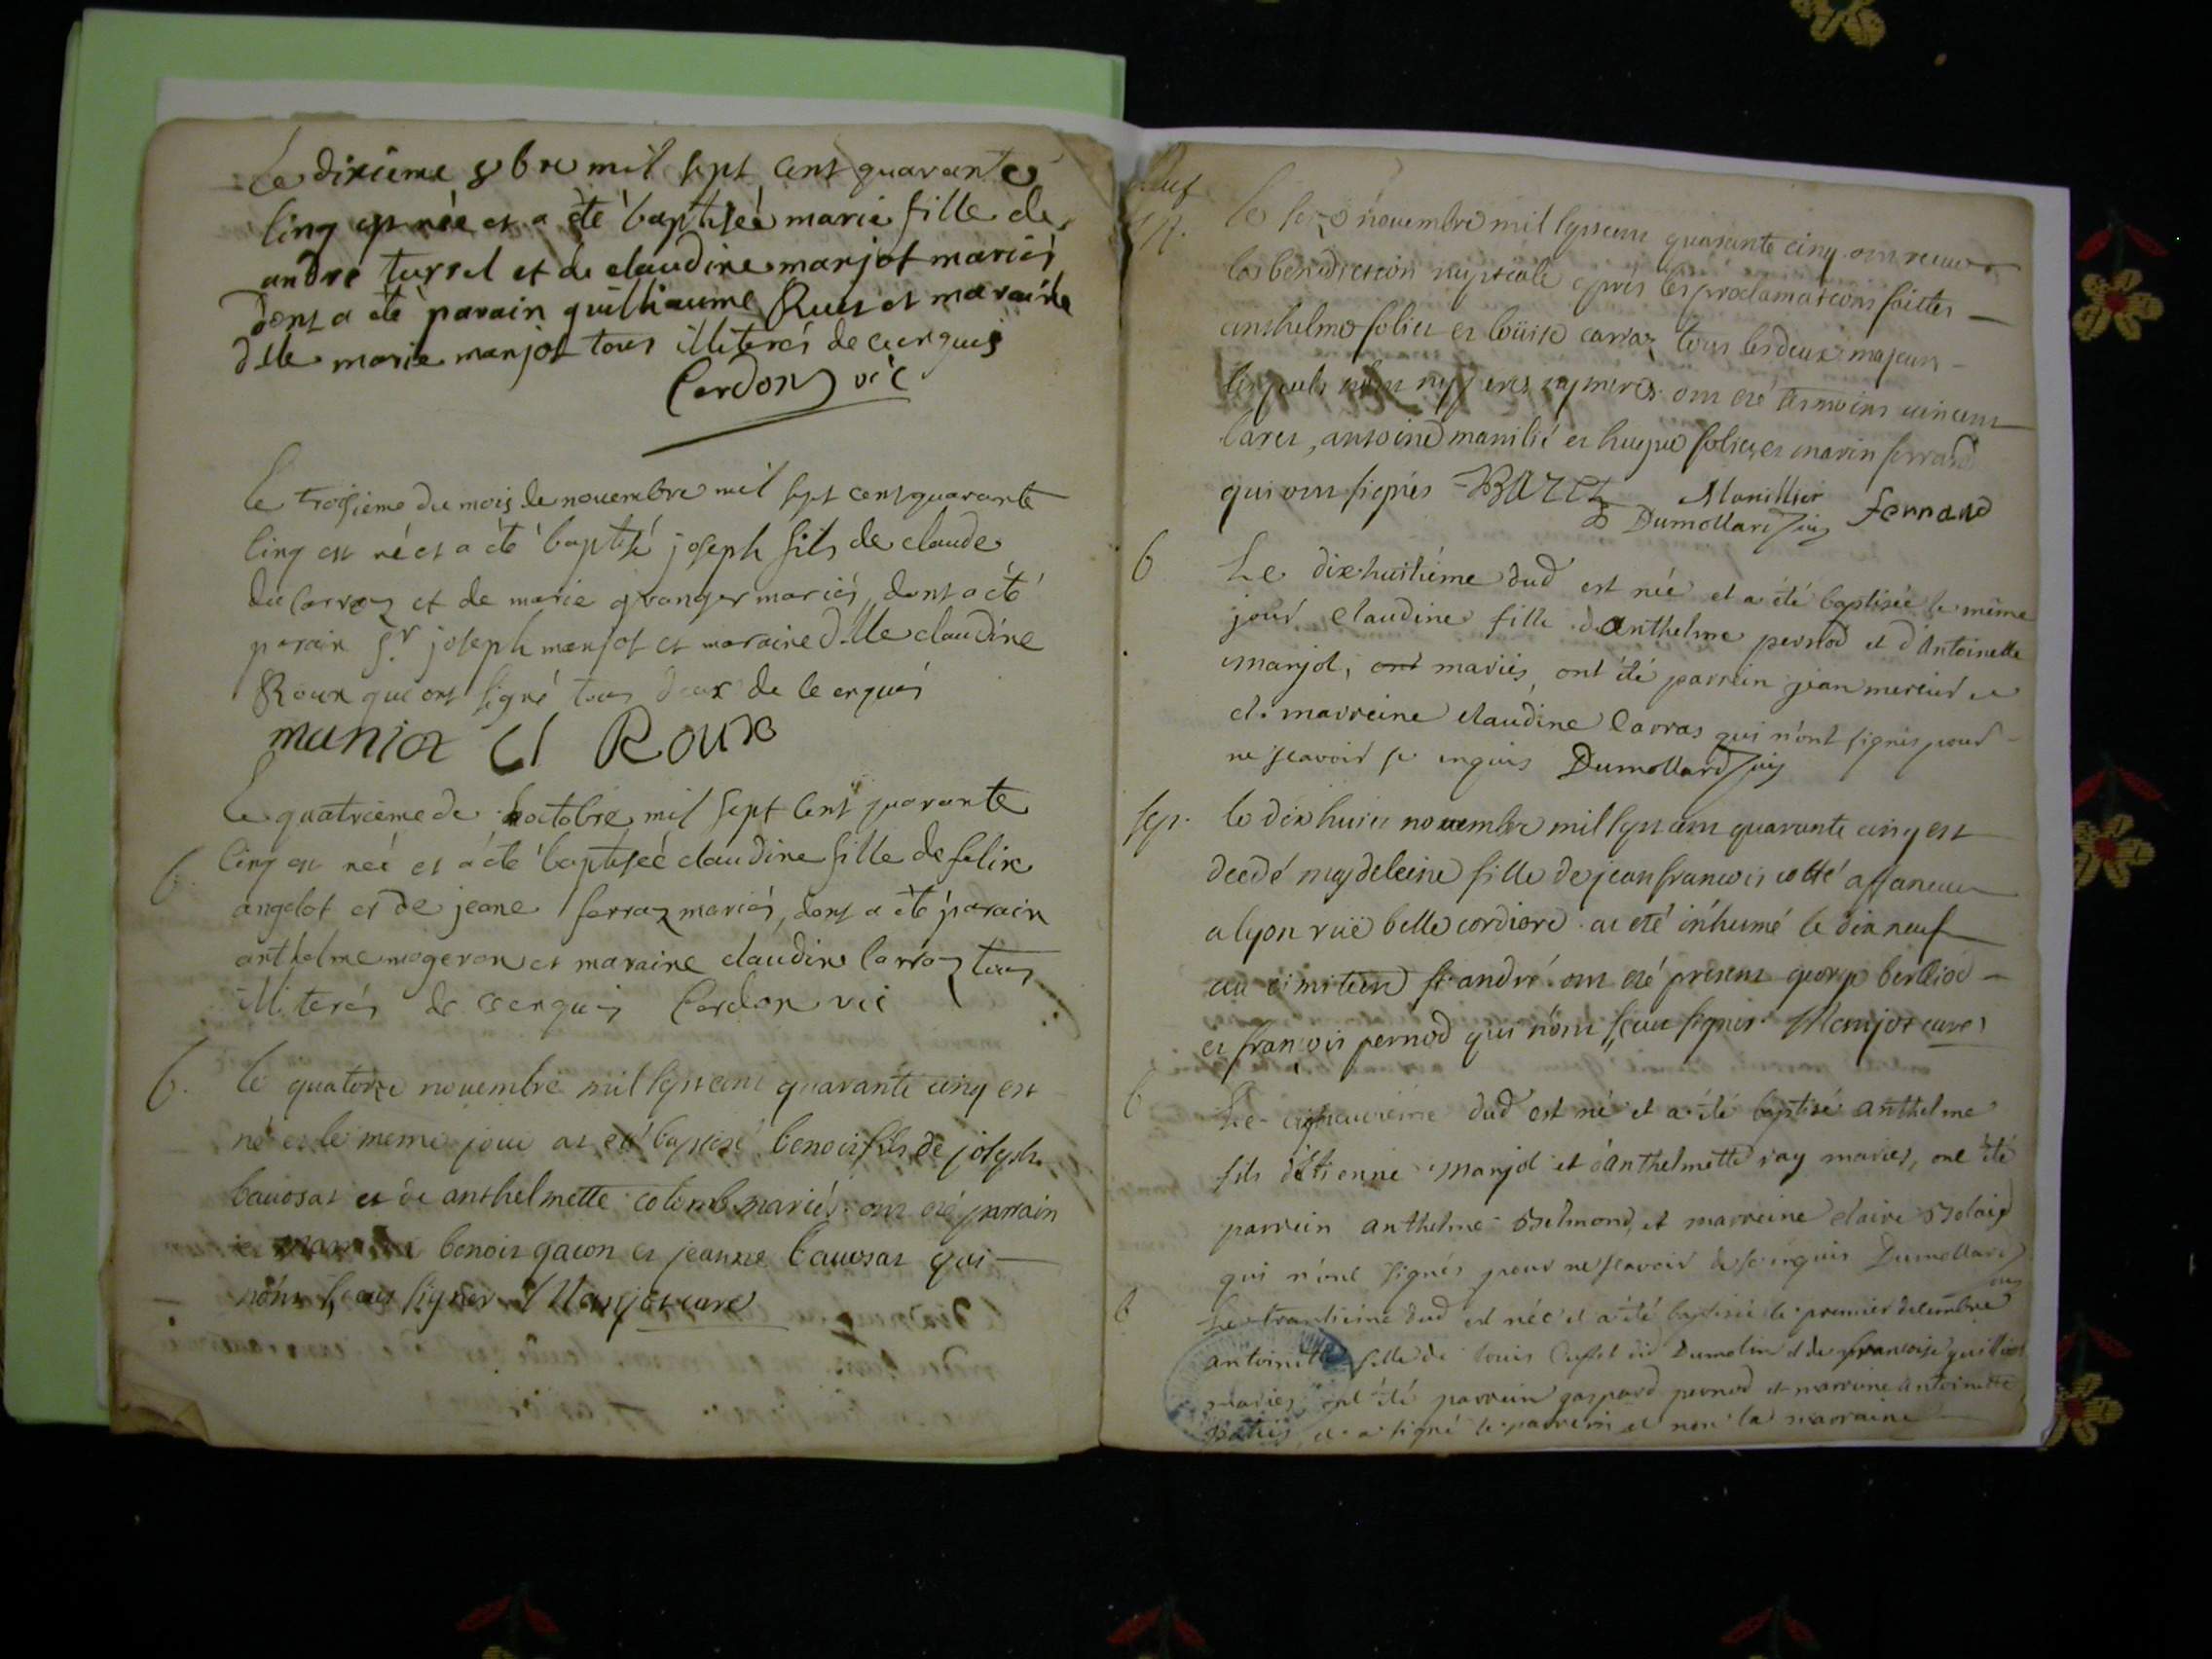 Le dixieme 8bre mil sept cent quarante
cinq est née et a été baptiseé marie fille de
andré turrel et de claudine manjot mariés
dont a été parain guilliaume Ruet et maraine
dlle marie manjot tous illiterés de ceirguis
Cardon vic
Le troisieme du mois de novembre mil sept cent quarante
cinq est né et a été baptisé joseph fils de claude
du carroz et de marie granger mariés, dont a été
parain Sr joseph manjot et maraine dlle claudine
Roux qui ont signé tous deux de
manjot Cl Roux
Le quatrieme de octobre mil sept cent quarante
b. cinq est neé et a été baptiseé claudine fille de felix
angelot et de jeane ferraz mariés, dont a été parain
anthelme mogeron et maraine claudine Carraz tous
illiterés de ceirguis Cardon vic
b. le quatorze novembre mil sept cent quarante cinq est
né et le meme jour at eté baptisé benoit fils de joseph
bavosat et de anthelmette colomb mariés. ont eté parrain
et benoit gacon et jeanne bavosat qui
n'ont sceus signer Manjot curé
le seize novembre mil sept cent quarante cinq ont receu
la benediction nuptiale aprés les proclamations faittes
anthelme folliet et loüise carraz tous les deux majeurs
ont eté temoins vincent
baret, antoine manilié et hugue foliet et marin ferrand
qui ont signés BARET Manillier
Dumollard Ferrand
b Le dixhuitiéme dud est née et a été baptisée le méme
jour claudine fille d'anthelme pernod et d'Antoinette
manjot, ont mariés, ont été parrein jean mercier et
et marreine claudine Carras qui n'ont signés pour
ne scavoir Dumollard
sep. le dix huict novembre mil sept cent quarante cinq est
decedé magdeleine fille de jean francois cotté affaneur
a lyon rüe belle cordiere. at eté inhumé le dix neuf
au cimitiere st andré. ont eté present george berliod
et françois pernod qui n'ont sceus signer Manjot curé
b Le dud est né et a été baptisé anthelme
fils d'étienne Manjot et d'anthelmette ray mariés, ont été
parrein anthelme Belmond, et marreine claire
qui n'ont signés pour ne scavoir Dumollard
b Le trentiéme dud est née et a été baptisée le premier decembre
antoinette fille de louis Cusset dit Dumolin et de francoise
mariés, ont été parrein gaspard pernod et marreine antoinette
et a signé le parrein et non la marraine